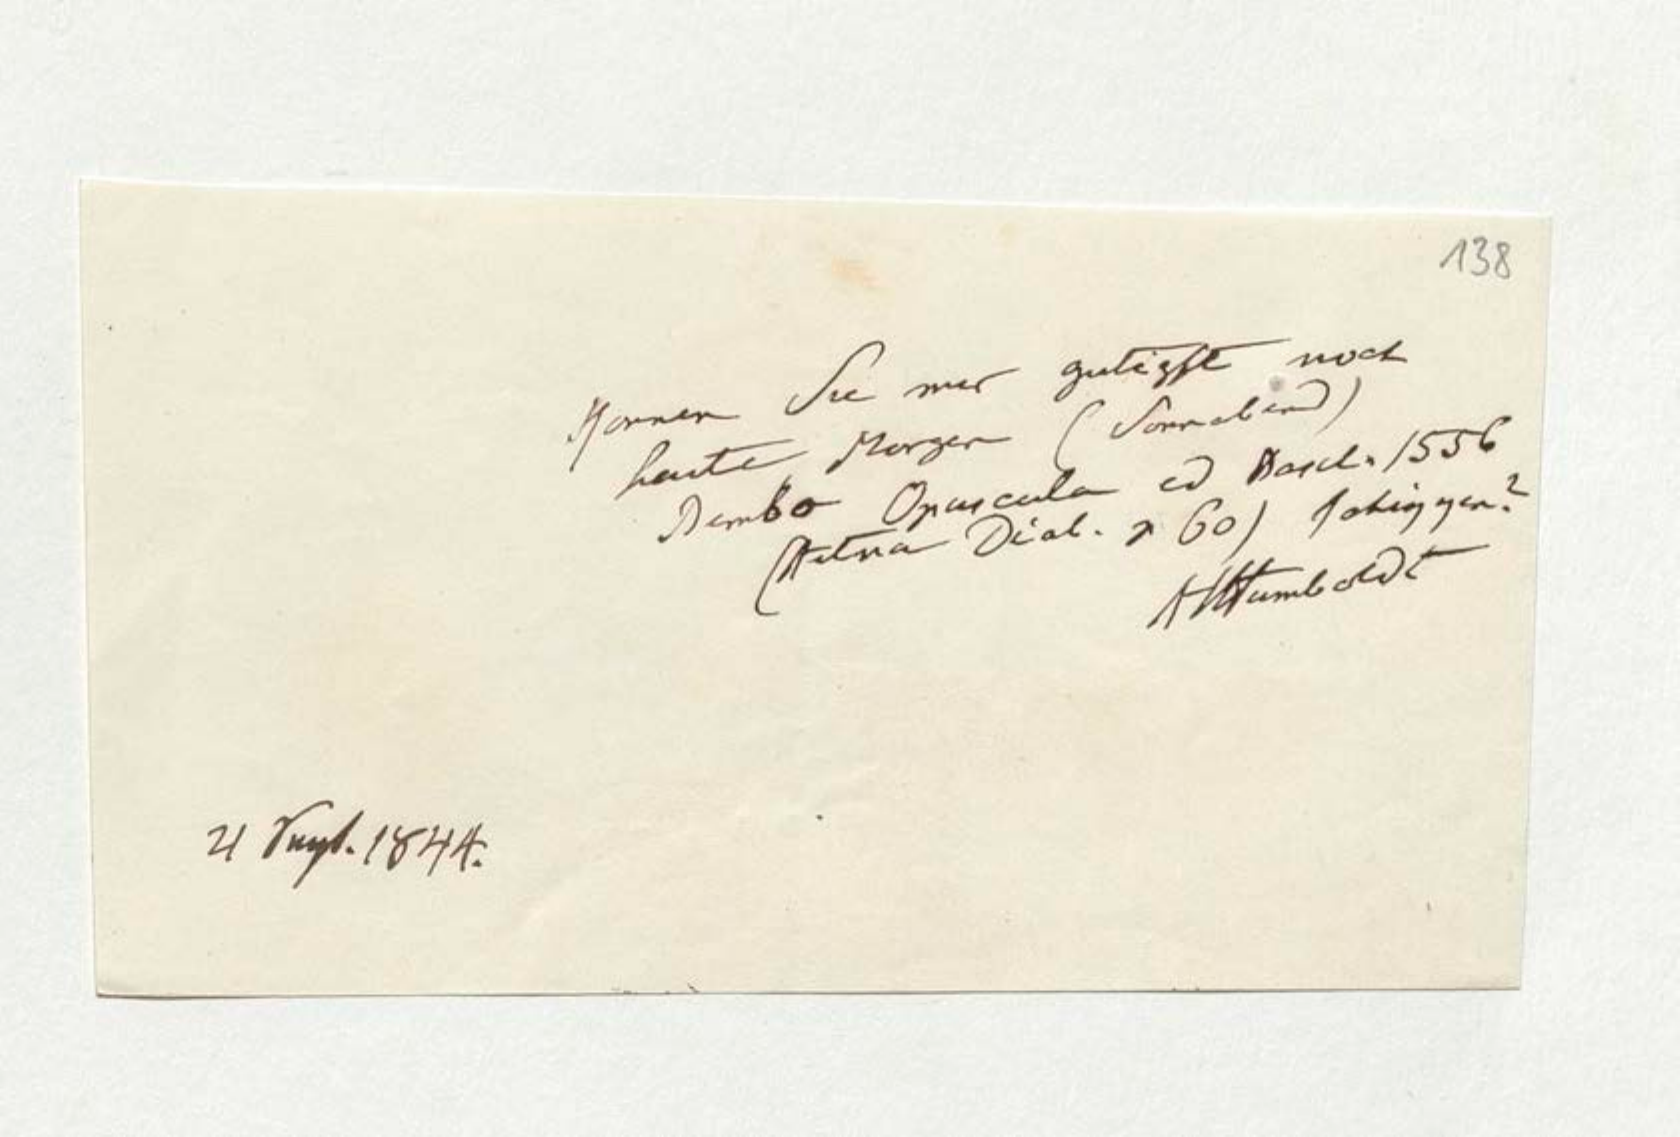 138
Konnen Sie mir gutigst noch
heute Morgen (Sonnabend)
Bembo Opuscula ed Basel. 1556
(Aetna Dial. p 60) schiggen?
AHumboldt
21 1844.